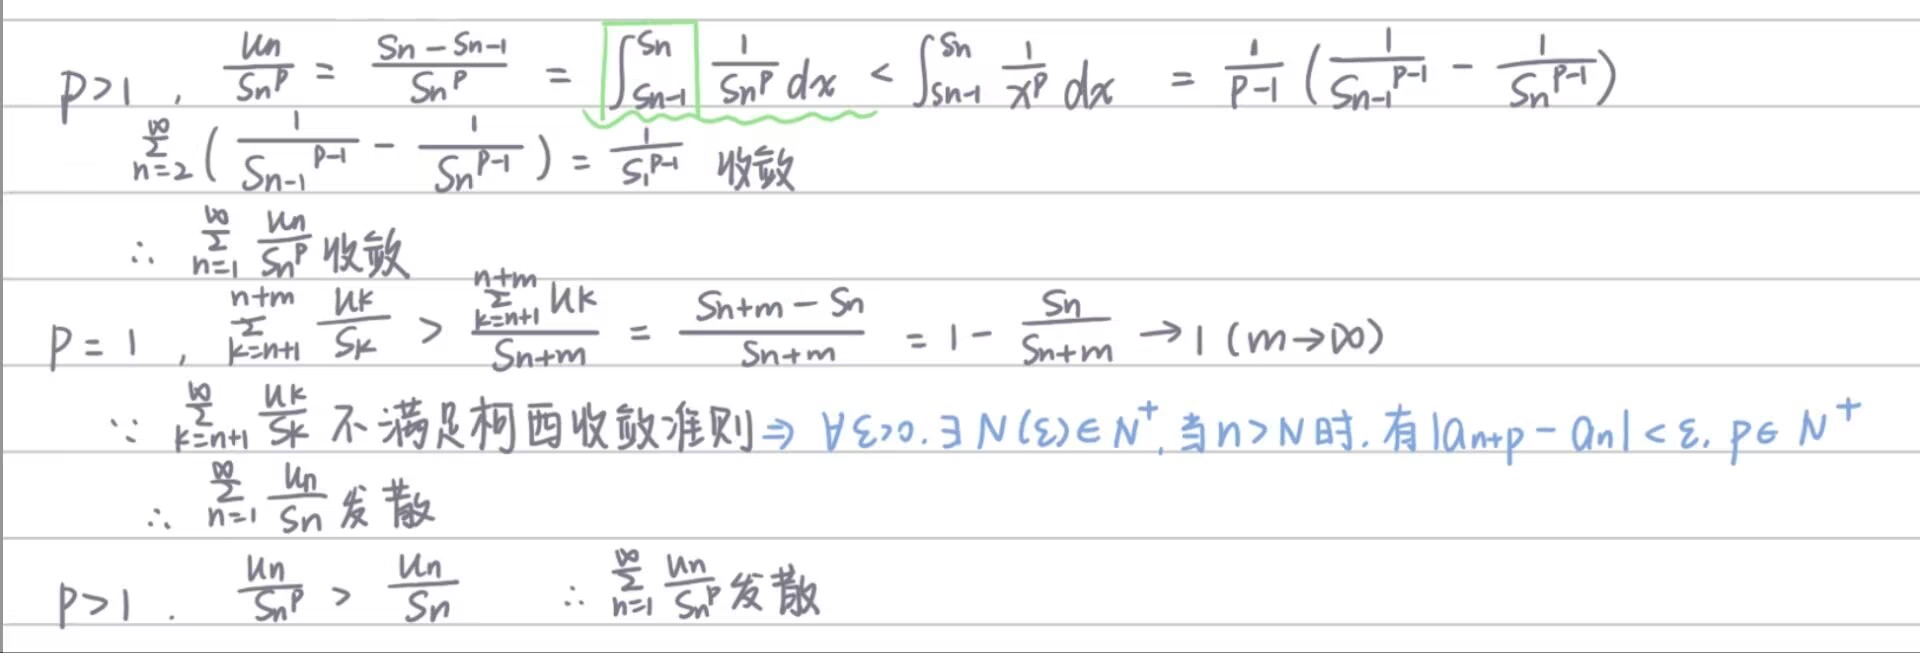 p>1, un/Sn^p = (Sn - Sn-1)/Sn^p = ∫_{Sn-1}^{Sn} 1/Sn^p dx < ∫_{Sn-1}^{Sn} 1/x^p dx = 1/(p-1) (1/Sn-1^{p-1} - 1/Sn^{p-1})
∑_{n=2}^{∞} (1/Sn-1^{p-1} - 1/Sn^{p-1}) = 1/S1^{p-1} 收敛
∴ ∑_{n=1}^{∞} un/Sn^p 收敛
p=1, ∑_{k=n+1}^{n+m} uk/Sk > (∑_{k=n+1}^{n+m} uk)/Sn+m = (Sn+m - Sn)/Sn+m = 1 - Sn/Sn+m → 1 (m→∞)
∵ ∑_{k=n+1}^{∞} uk/Sk 不满足柯西收敛准则 ⇒ ∀ε>0. ∃ N(ε)∈N^+, 当n>N时. 有|an+p - an|<ε. p∈N^+
∴ ∑_{n=1}^{∞} un/Sn 发散
p>1. un/Sn^p > un/Sn ∴ ∑_{n=1}^{∞} un/Sn^p 发散